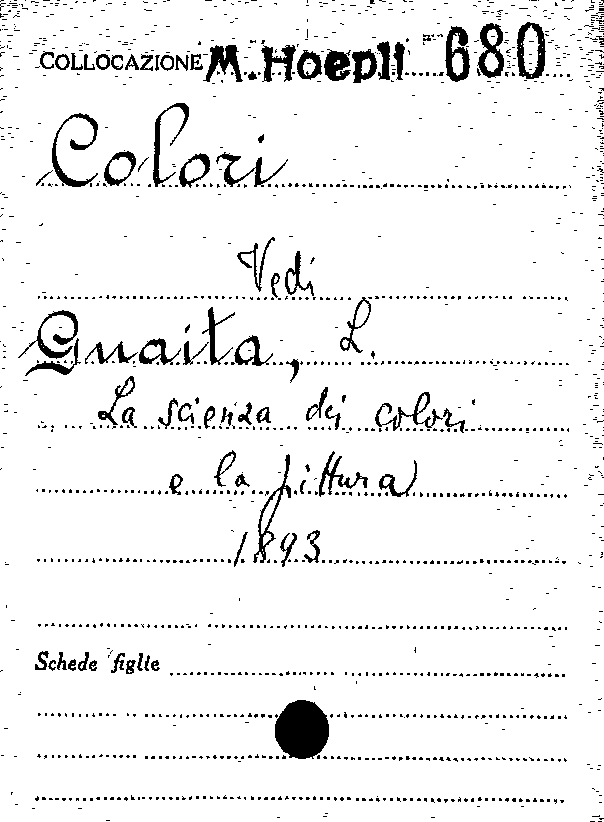 COLLOCAZIONE M. Hoepli 680
Colori
Vedi
Guaita, L.
La scienza dei colori
e la pittura
1893
Schede figlie